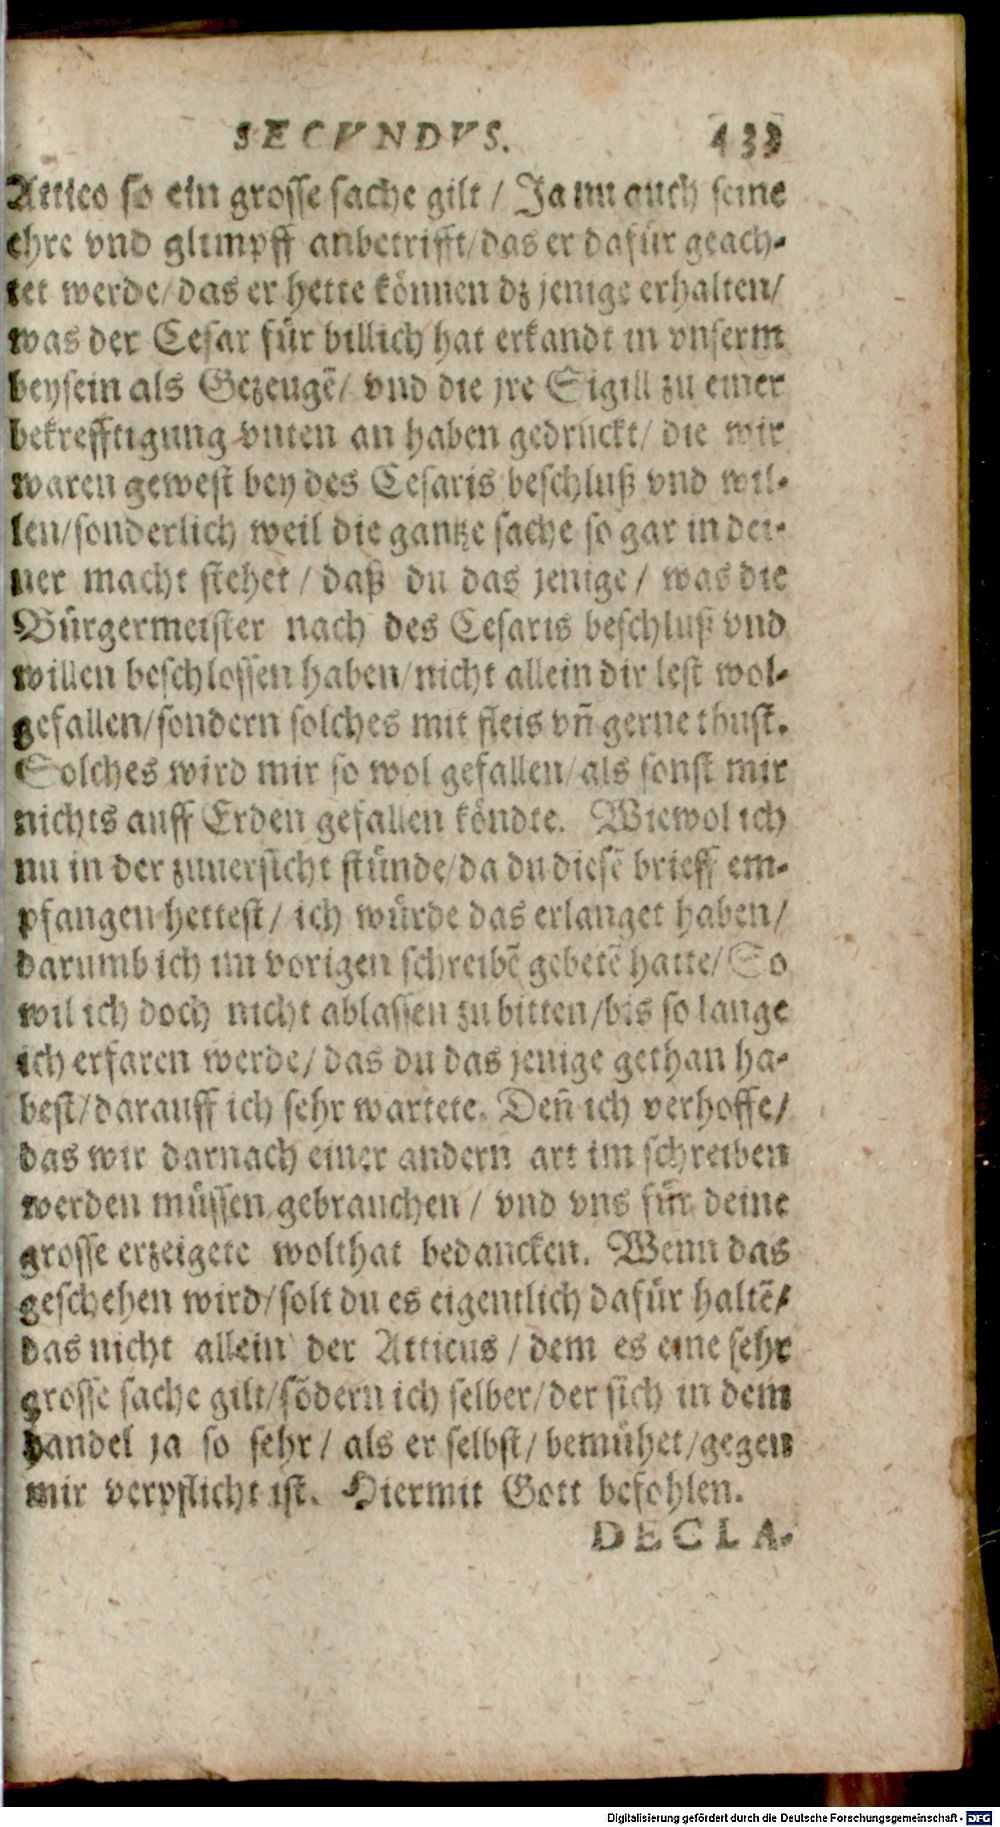 SECVNDVS. 433
Attico so ein grosse sache gilt / Ja nu auch seine
ehre vnd glimpff anbetrifft/ das er dafür geach-
tet werde/ das er hette können dz jenige erhalten/
was der Cesar für billich hat erkandt in vnserm
beysein als Gezeugē/ vnd die jre Sigill zu einer
bekrefftigung vnten an haben gedruckt/ die wir
waren gewest bey des Cesaris beschluß vnd wil-
len/sonderlich weil die gantze sache so gar in dei-
ner macht stehet / daß du das jenige / was die
Bürgermeister nach des Cesaris beschluß vnd
willen beschlossen haben/nicht allein dir lest wol-
gefallen/sondern solches mit fleis vñ gerne thust.
Solches wird mir so wol gefallen/als sonst mir
nichts auff Erden gefallen köndte. Wiewol ich
nu in der zuuersicht stünde/da du diesē brieff em-
pfangen hettest/ ich würde das erlanget haben/
darumb ich im vorigen schreibē gebetē hatte/ So
wil ich doch nicht ablassen zu bitten/bis so lange
ich erfaren werde/ das du das jenige gethan ha-
best/darauff ich sehr wartete. Deñ ich verhoffe/
das wir darnach einer andern art im schreiben
werden müssen gebrauchen / vnd vns für deine
grosse erzeigete wolthat bedancken. Wenn das
geschehen wird/solt du es eigentlich dafür haltē/
das nicht allein der Atticus / dem es eine sehr
grosse sache gilt/sōdern ich selber/der sich in dem
handel ja so sehr / als er selbst/ bemühet/gegen
mir verpflicht ist. Hiermit Gott befohlen.
DECLA-
Digitalisierung gefördert durch die Deutsche Forschungsgemeinschaft - DFG